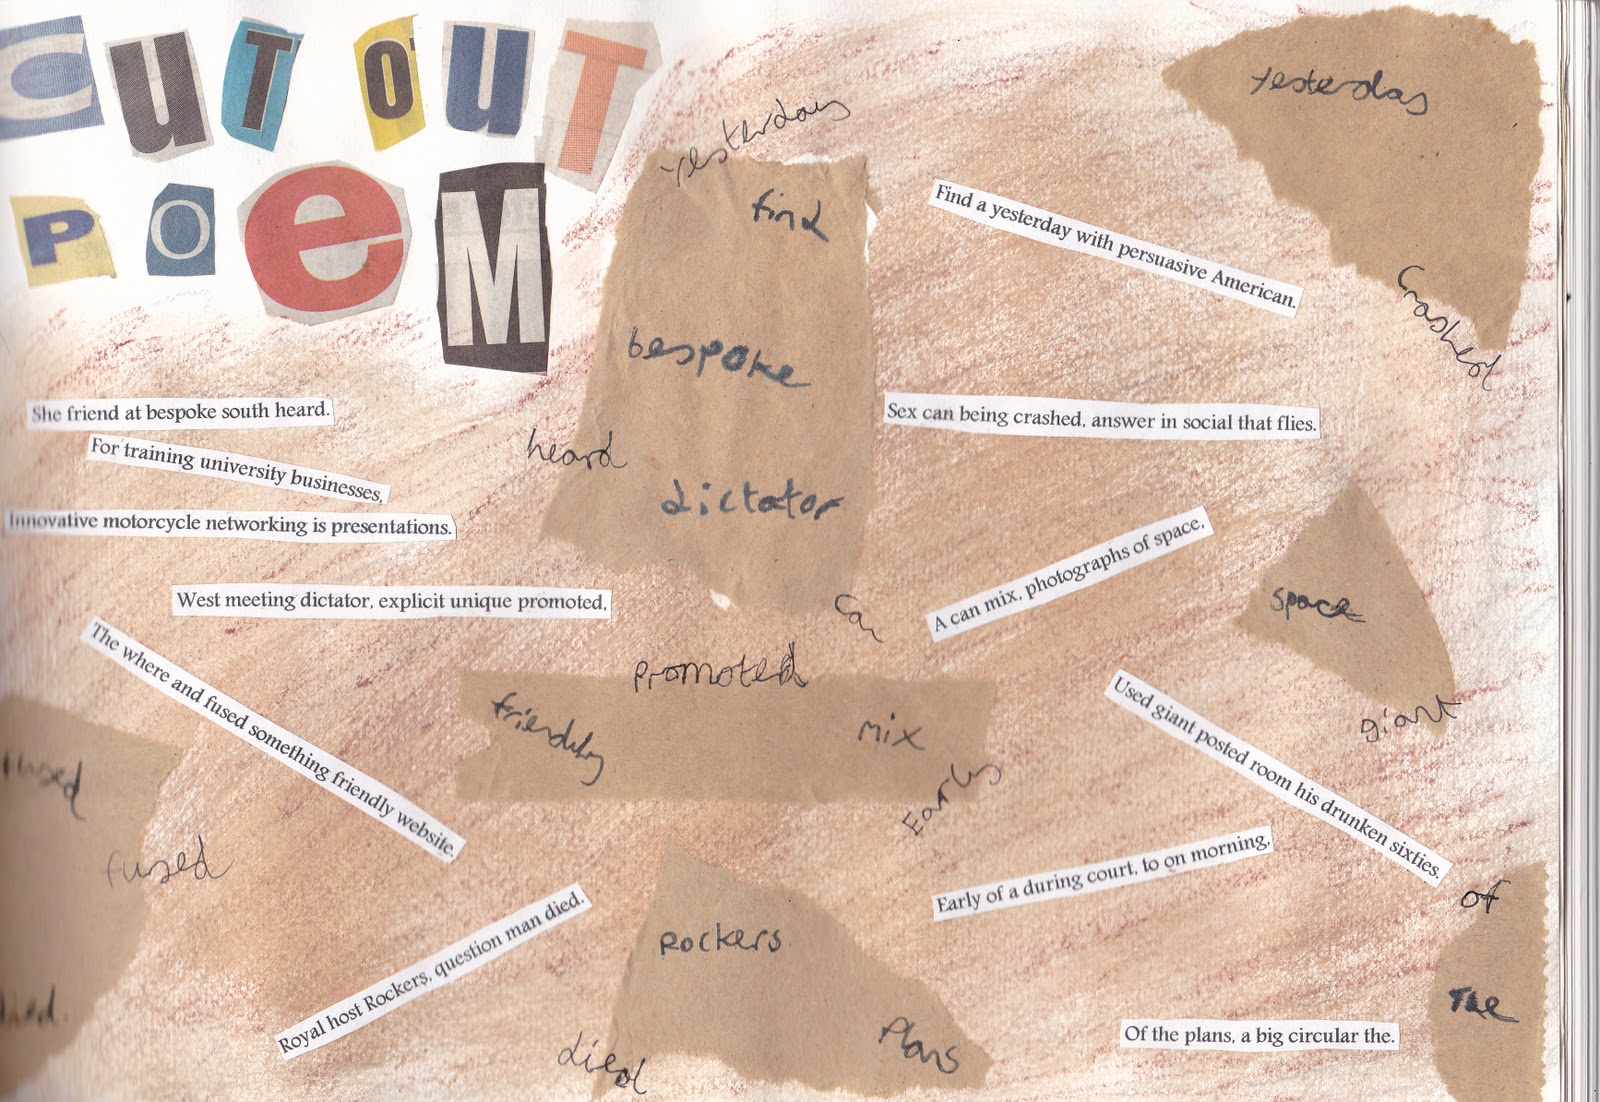 CUT OUT
POeM
yesterday
find
bespoke
heard
dictator
can
promoted
friendly
mix
Early
She friend at bespoke south heard.
For training university businesses,
Innovative motorcycle networking is presentations.
West meeting dictator, explicit unique promoted,
The where and fused something friendly website.
Royal host Rockers, question man died.
fused
fused
Rockers
died
Plans
yesterday
Crashed
Find a yesterday with persuasive American.
Sex can being crashed, answer in social that flies.
A can mix, photographs of space,
space
giant
Used giant posted room his drunken sixties.
Early of a during court, to on morning,
Of the plans, a big circular the.
of
The